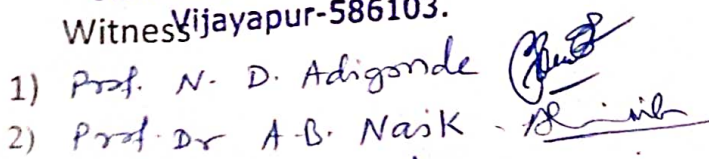 Witness Vijayapur-586103.
1) Prof. N. D. Adigonde
2) Prof. Dr A.B. Naik -